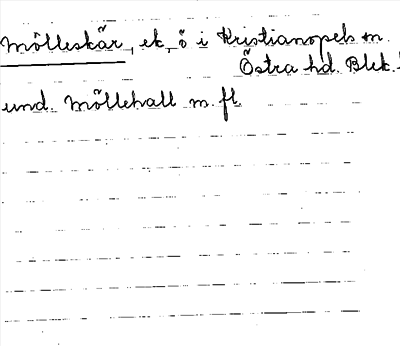 Mölleskär, ek. ö i Kristianopels sn.
Östra hd. Blek.
und. Möllehall m. fl.